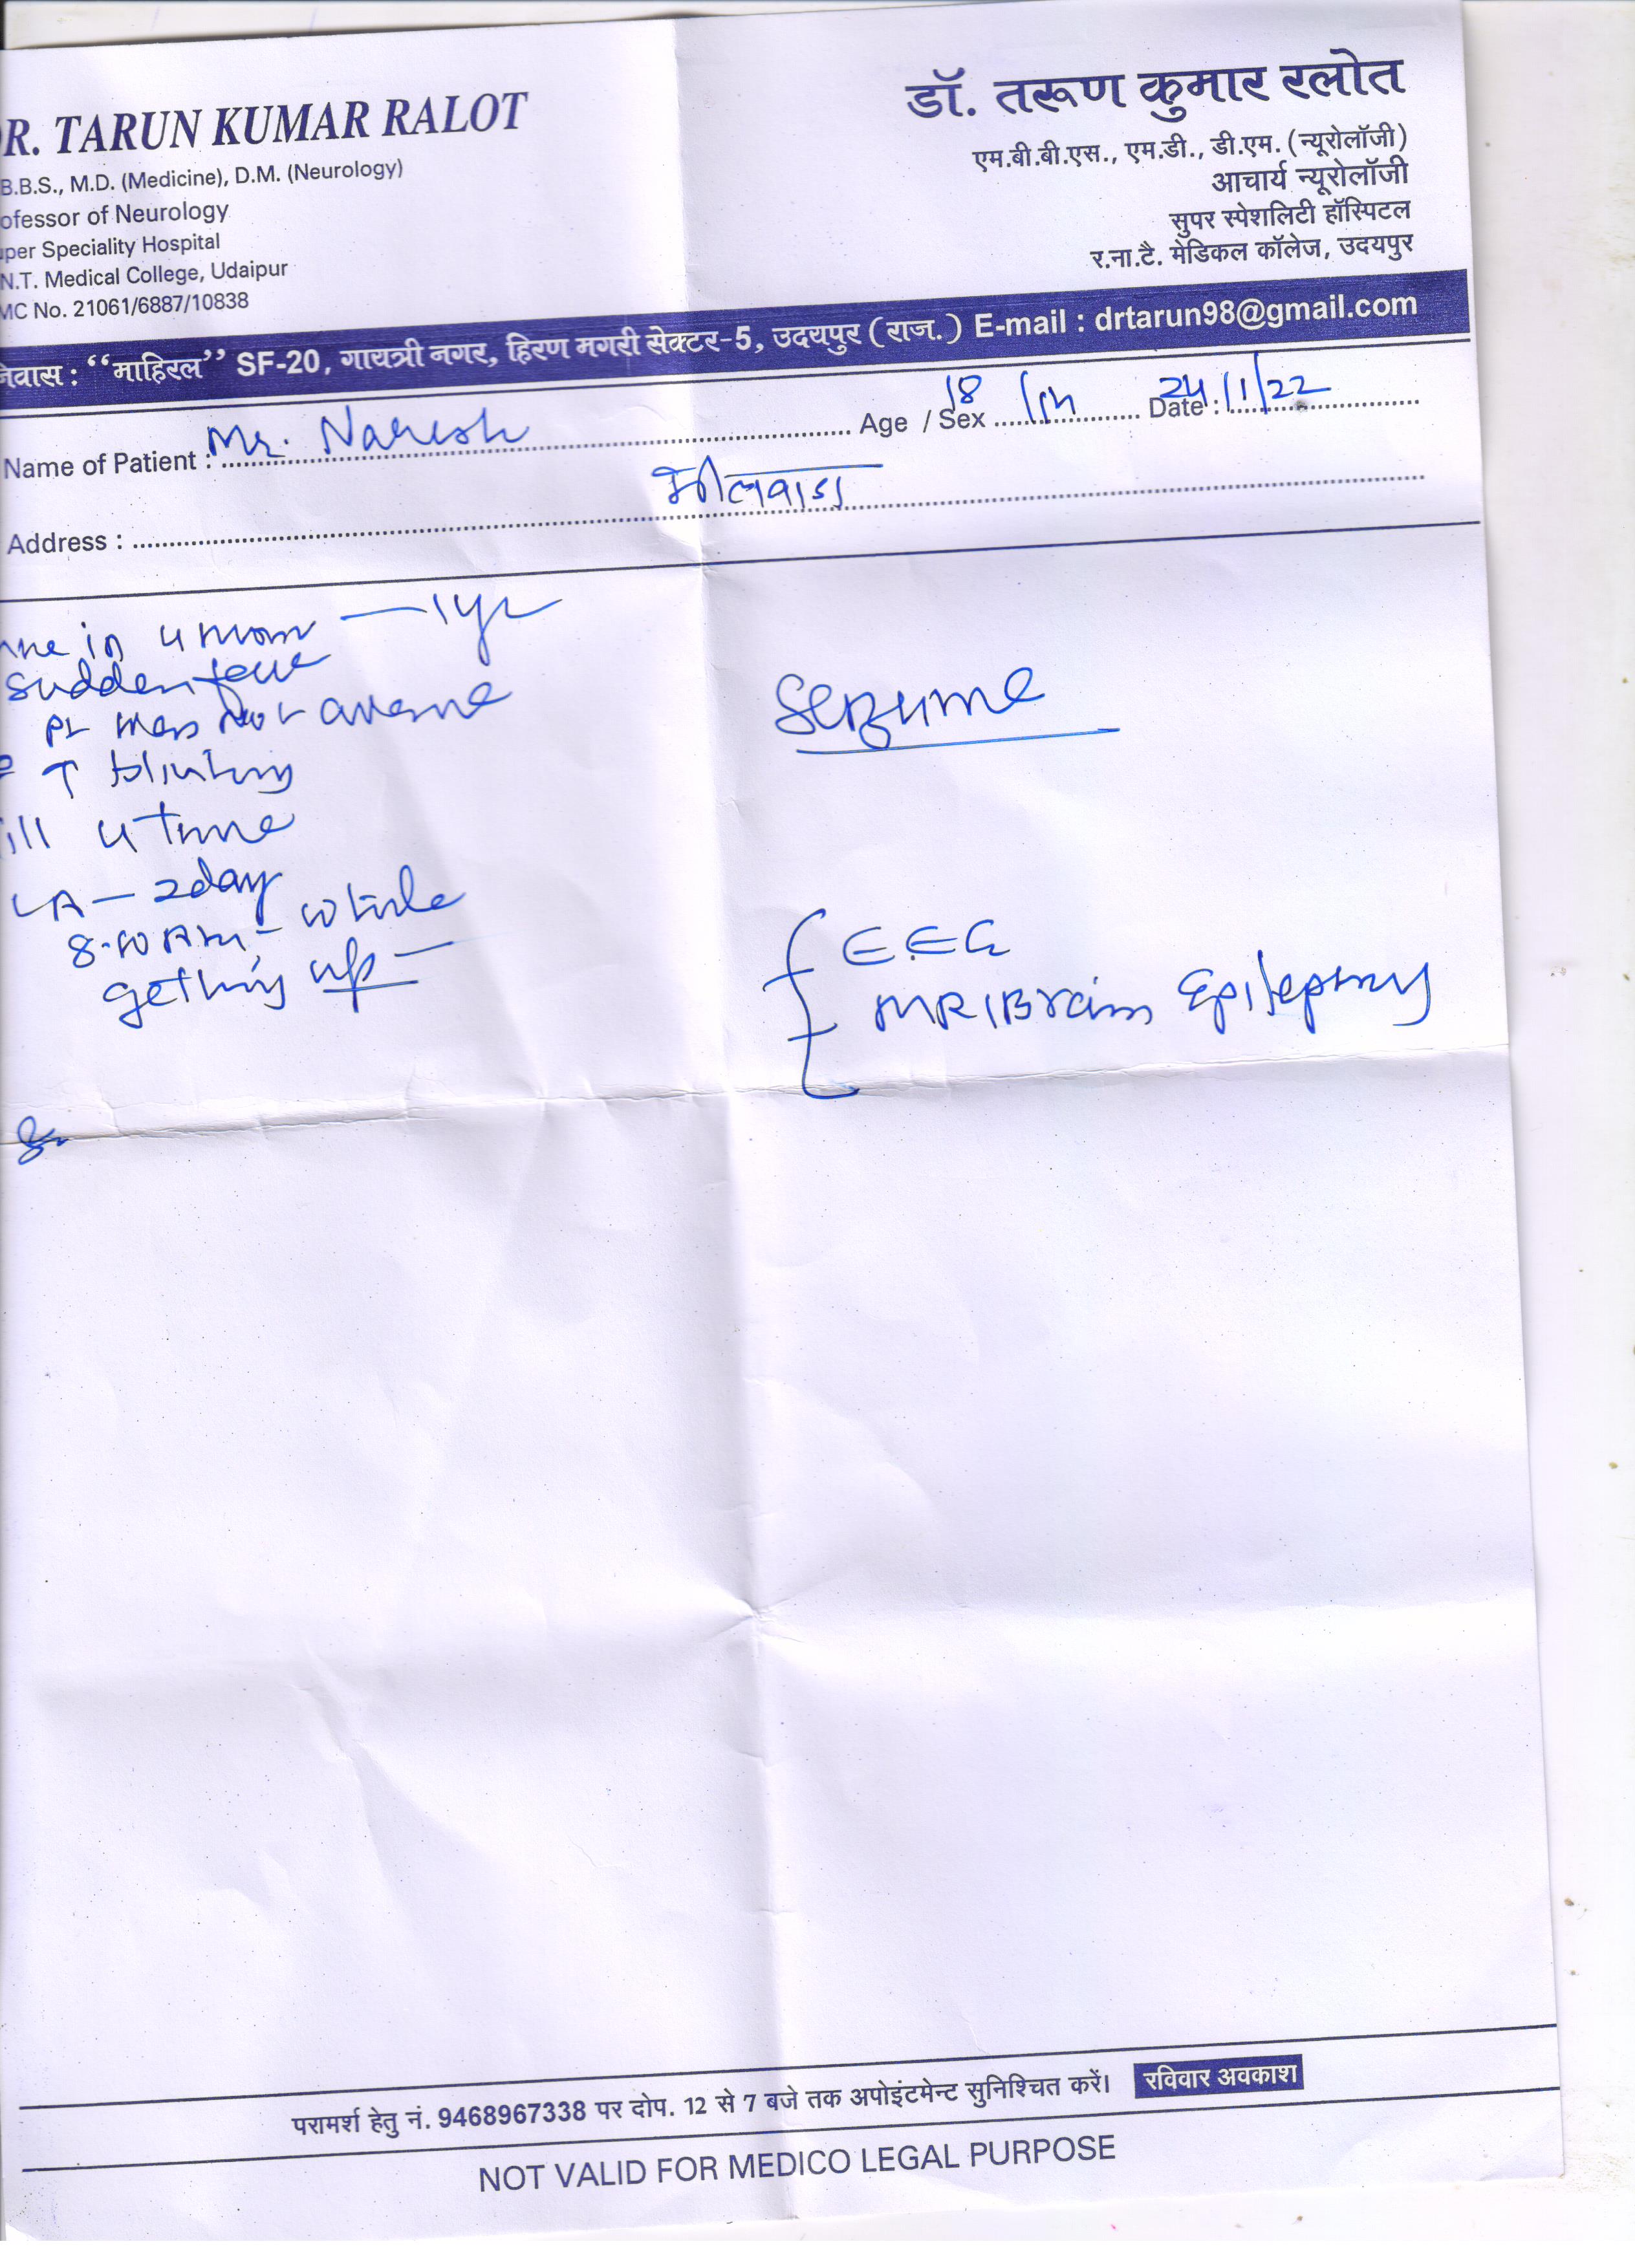 R. TARUN KUMAR RALOT
डॉ. तरूण कुमार रलोत
B.B.S., M.D. (Medicine), D.M. (Neurology)
ofessor of Neurology
per Speciality Hospital
N.T. Medical College, Udaipur
MC No. 21061/6887/10838
एम.बी.बी.एस., एम.डी., डी.एम. (न्यूरोलॉजी)
आचार्य न्यूरोलॉजी
सुपर स्पेशलिटी हॉस्पिटल
र.ना.टै. मेडिकल कॉलेज, उदयपुर
नेवास : “माहिरल” SF-20, गायत्री नगर, हिरण मगरी सेक्टर-5, उदयपुर (राज.) E-mail : drtarun98@gmail.com
Name of Patient : Mr. Naresh Age / Sex 18 / M Date : 24/1/22
Address : भीलवाडा
in 4 — 1yr
sudden
Pt
↑ blinking
ill 4 time
LA — 2day
8-10 AM — while
getting up —
EEG
MRI Brain Epilepsy
परामर्श हेतु नं. 9468967338 पर दोप. 12 से 7 बजे तक अपोइंटमेन्ट सुनिश्चित करें। रविवार अवकाश
NOT VALID FOR MEDICO LEGAL PURPOSE